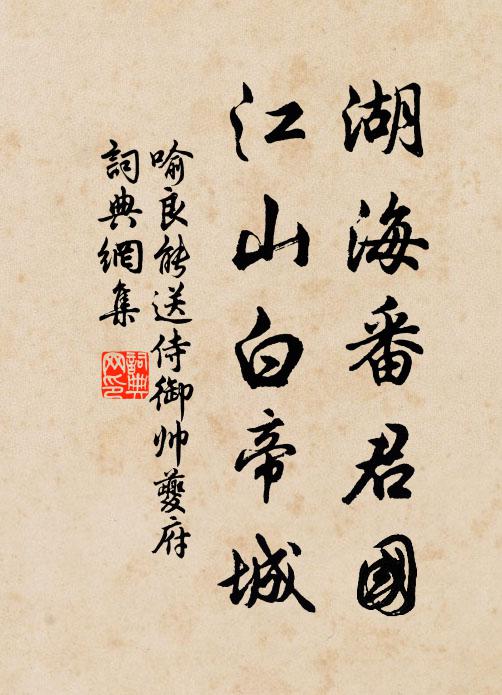 湖海番君國
江山白帝城
喻良能送侍御帅夔府
詞典網集
詞典
网印